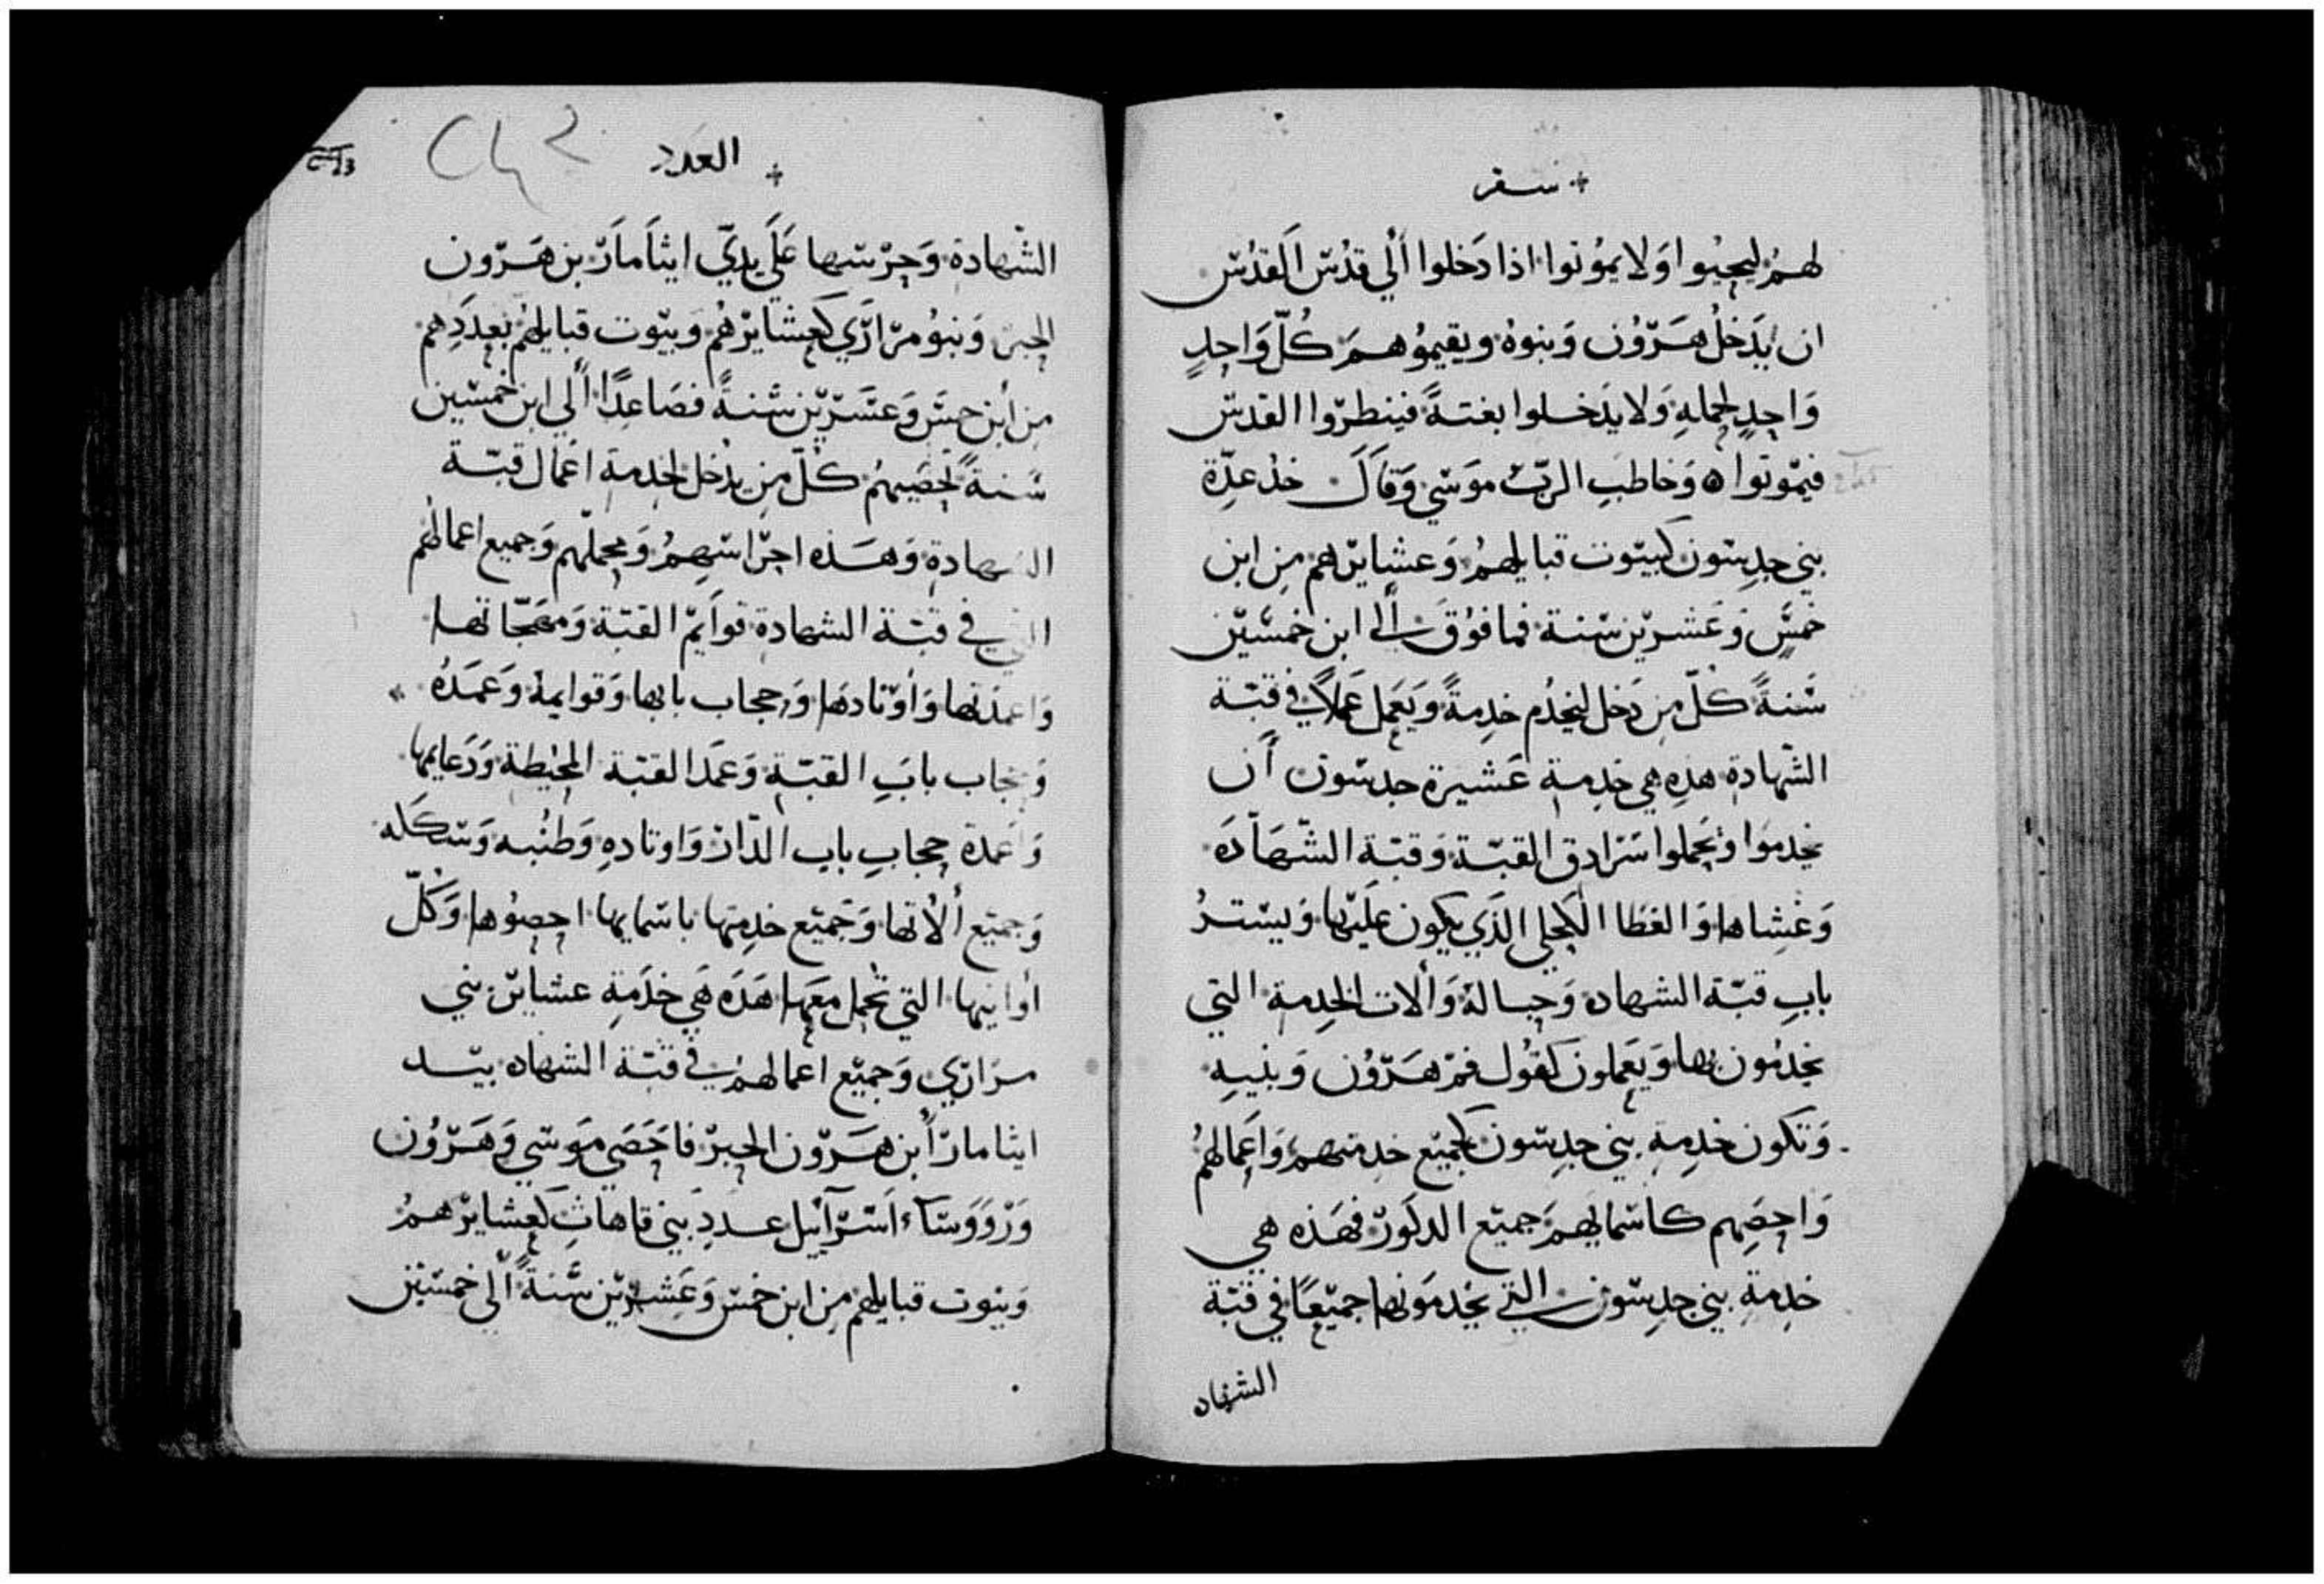 سفر
لهُم ليحيُوا وَلا يموُتوا اذا دَخلوا أَلي قدُس اَلقدُس
ان يَدَخلُ هَرّوُن وَبنوهُ ويقيموُهمَ كُلّ وَاحِدٍ
وَاحِدٍ لحمالهِ وَلا يدَخلوا بغتةً فينطرّوا القدس
فيمّوتوا ه وَخاطبِ الربّ موَسي وَقاَلَ خذ عدِّة
بني جدِسون كبيّوت قبايلهُم وَعشايرّهم مِن ابن
خمسٍّ وَعَشريّن سّنة فما فوُقَ الى ابن خمسّيّن
سَّنةً كلّ مِن دَخل ليخدُم خدِمةً وَيعَمل عَملاً في قبّة
الشّهادة هذِه هي خدِمةِ عَشيرة جدسّون أن
يخدموَا وَيحملوا سَرّادق القبّة وَقبّة الشّهاَدَه
وَغشِاها وَالغطَا الكحلي الذَي يكون عليَها وَيسّترُ
بابِ قبّة الشهاده وَحبالهُ وَألات الخدِمة التي
يخدمُون بها وَيعَملون كقوُل فمّ هَرّوُن وَبنيهِ
وَتكون خدِمةِ بني جدِسّون لجميّع خدمتهم وَاعَمالهمُ
وَاحصِهم كاسّمايهمَ جميّع الدكوَرّ فهَذه هي
خدِمةِ بني جدِسّون التي يخدموَنها جميّعاً في قبّة
الشهاده
العدد
الشّهادة وَحِرّسها عَلَي يدَيّ ايثاَماَرّ بن هَرّون
الحبر وَبنوُ مرّارَّي كعشايرّهُم وَبيّوت قبايلهُم بعددَِهم
مِن أبن خمسَ وَعشَرّيّن سّنةً فصَاعِداً ألي ابن خمسّين
سّنةً تحصَيهُم كلّ مِن يدُخل لخدمةِ اعَمال قبّة
الشهادة وَهَذه احرّاسهِمُ وَمحملّهم وَجميع اعمالهُم
التي في قبّة الشهادة قوَايمّ القبّة وَمعَجّاتها
وَاعمدَتها وَأوّتادهَا وَحجاب بابها وَقوايمهُ وَعمَدُه
وَحجاب بابَِ القبّة وَعمَد القبّة المحيُطة وَدَعايمها
وَاعَمدة حجابِ بابِ الدّارّ وَاوتادهِ وَطنُبه وَسّكَله
وَجميّع ألأتها وَجَميّع خدِمتها باسّمايها احصوُها وَكُلّ
اوَانيها التي تحُمل معَها هَذَه هَي خدَمةِ عشايرّ بني
مرَارّي وَجميّع اعمالهمُ في قبّة الشهاده بيّد
ايثامارّ أبن هَرّون الحبرّ فاحَصَي موَسّي وَهَرّوُن
وَرّوَوَسّآء اَسّرّآئيل عددِ بني قاهاثِ كعشايرّهمُ
وَبيوت قبايلهم مِن ابن خمسّ وَعَشِريّن سَّنةً ألّي خمسّيّن